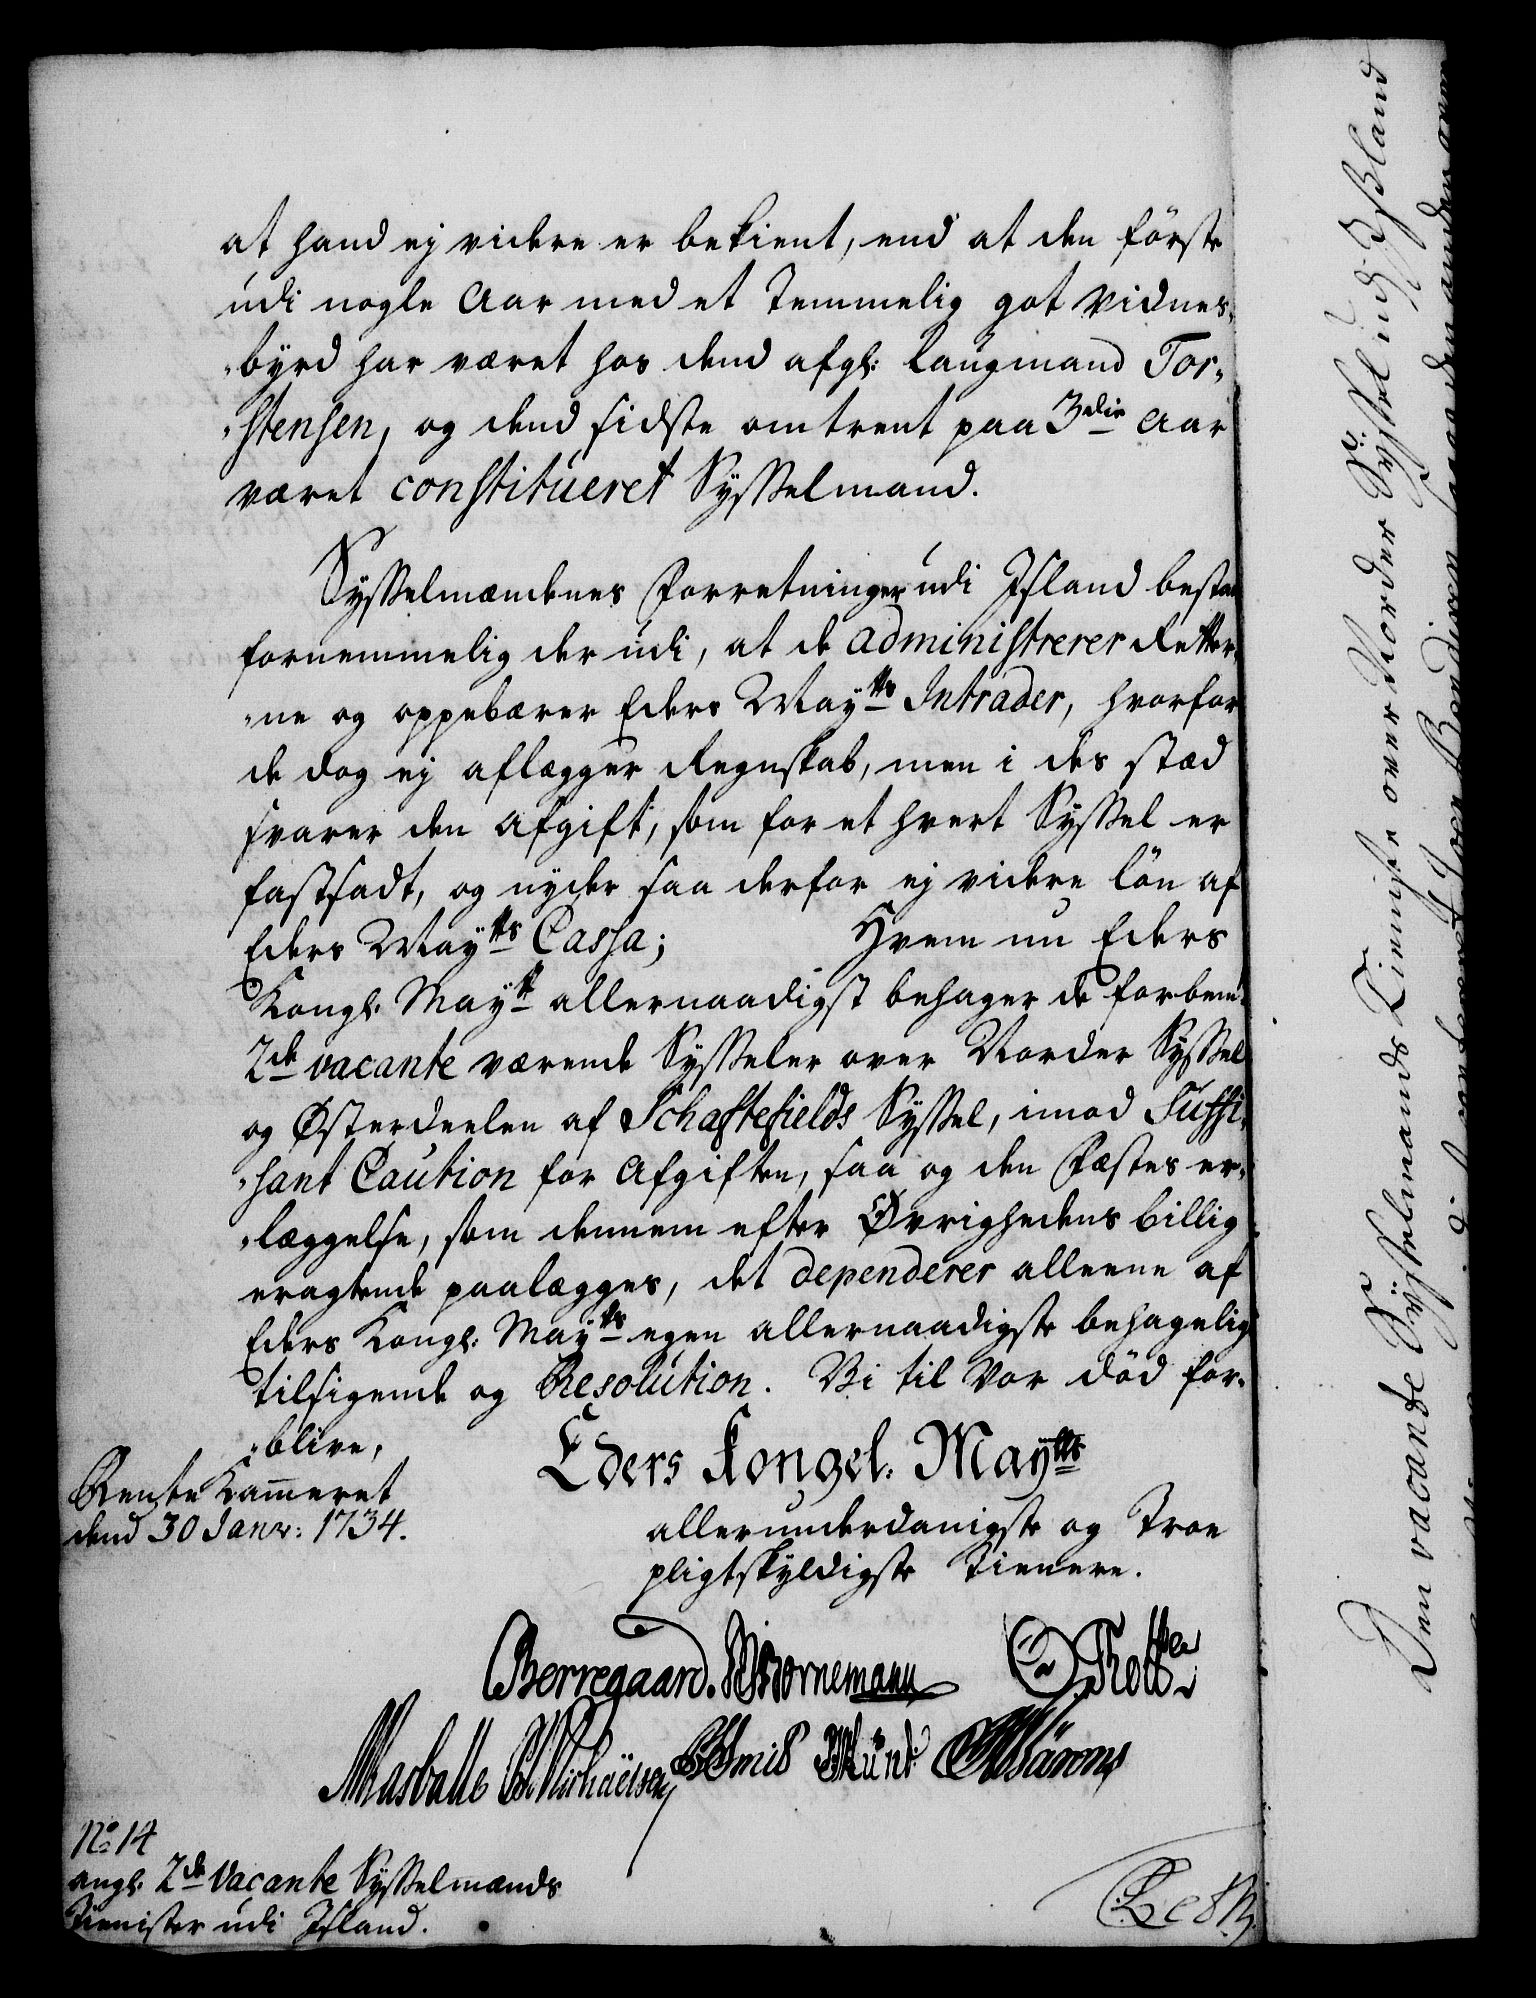 at hand ej videre er bekient, end at den förste
udi nogle Aar med et Temmelig got Vidnes-
-byrd har været hos dend afg: Laugmand Tor-
-stensen, og dend sidste omtrent paa 3die Aar
været constitueret Sysselmand.
Sysselmændenes Forretninger udi Island bestaar
fornemmelig der udi, at de administrerer Retter-
-ne og oppebærer Eders Mayts Intrader, hvorfor
de dog ej aflægger Regnskab, men i des stæd
svarer den Afgift, som for et hvert Syssel er
fastsadt, og nyder saa derfor ej videre lön af
Eders Mayts Cassa; Hvem nu Eders
Kongl: Mayt allernaadigst behager de forbem:
2de vacante værende Sysseler over Norder Syssel
og Østerdeelen af Schaftefields Syssel, imod Suffi-
-sant Caution for Afgiften, saa og den Fæstes er-
-læggelse, som dennem efter Øvrighedens billig
eragtende paalægges, det dependerer alleene af
Eders Kongl: Mayts egen allernaadigste behagelig
tilsigende og Resolution. Vi til Vor död for-
-blive,
Eders Kongel. Mayts
allerunderdanigste og Troe
pligtskyldigste Tienere.
Rente Kammeret
dend 30 Janr: 1734.
Berregaard. Bornemann
Masballe
Smid Munk
No 14
angl: 2de Vacante Sysselmænds
Tienister udi Island.
Den vacante Sysselmands Tieniste over Norder Syssel udj Island